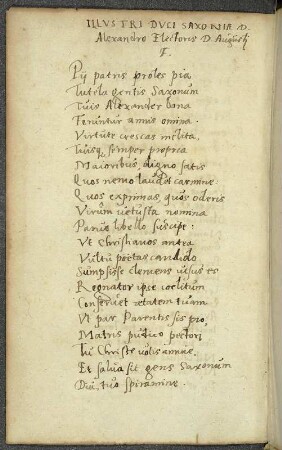 ILLUSTRI DUCI SAXONIÆ D.
Alexandro Electoris D. Augusti
F.
Pij patris proles pia
Tutela gentis Saxonum
Tuis Alexander bona
Feruntur annis omina.
Virtute crescas inclita,
Tuisq, semper propria
Maioribus, digno satis
Quos nemo laudet carmine.
Quos exprimas, quos oderis
Virum uetusta nomina
Paruo libello suscipe:
Vt Christianos antea
Vultu poetas candido
Sumpsisse clemens uisus es
Regnator ipse coelitum
Conseruet ætatem tuam
Vt par Parentis sis pro,
Matris pudico pectori,
Tu Christe uotis annue,
Et salua sit gens Saxonum
Diu, tuo spiramine.